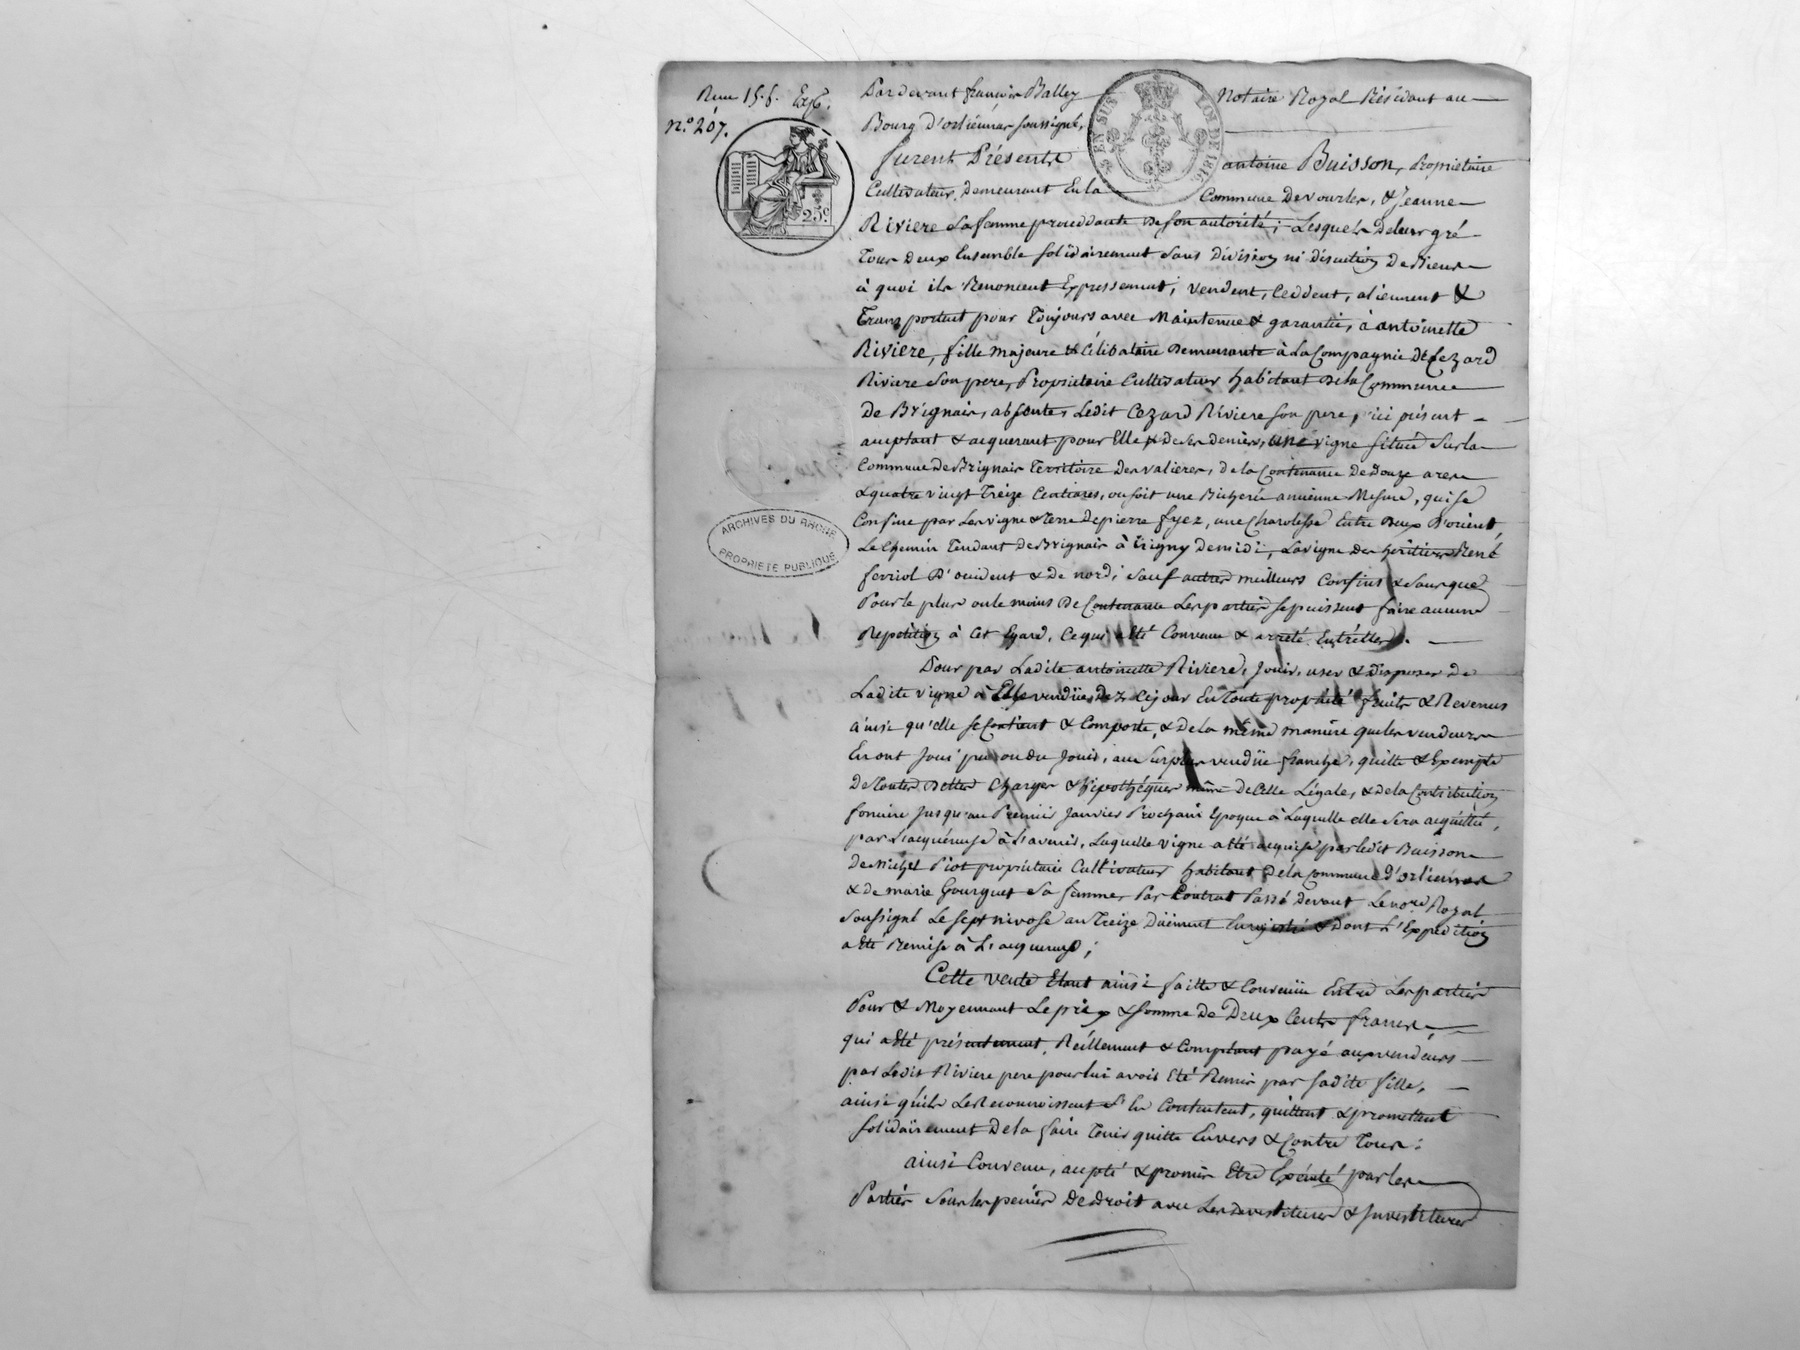 Reçu 15 f. Exp.
n.° 207.
25 c
EN SUS LOI DE 1816
ARCHIVES DU RHONE
PROPRIETE PUBLIQUE
Pardevant françois Balley Notaire Royal Résidant au
Bourg d'orliénas soussigné,
furent Présents antoine Buisson, Propriétaire
Cultivateur, demeurant En la Commune de vourles, & Jeanne
Riviere sa femme procéddante de son autorité; Lesquels de leur gré
Tous deux Ensemble solidairement sans division ni discution de Biens
à quoi ils Renoncent Expressement, vendent, Ceddent, aliennent &
Transportent pour Toujours avec Maintenue & garantie, à antoinette
Riviere, fille majeure & Célibataire demeurante à La Compagnie de Cezard
Riviere son pere, Propriétaire Cultivateur habitant de la Commune
de Brignais, absente, Ledit Cezard Riviere son pere, ici présent
acceptant & acquerant pour Elle & de ses deniers, une vigne située sur la
Commune de Brignais Territoire des valieres, de la Contenance de douze ares
& quatre vingt Treize Centiares, ou soit une Bicherée ancienne Mesure, qui se
Confine par Les vigne & Terre de pierre fyez, une Charolesse Entre deux d'orient,
Le Chemin Tendant de Brignais à irigny de midi, La vigne des héritiers René
ferriol d'occident & de nord, sauf autres meilleurs Confins & sans que
Pour le plus ou le moins de Contenance Les parties se puissent faire aucune
Repétition à Cet Egard, Ce qui a été Convenu & arreté Entr'elles.
Pour par Ladite antoinette Riviere, Jouir, user & disposer de
Ladite vigne à Elle vendüe dez Ce jour En Toute propriété fruits & Revenus
ainsi qu'elle se Contient & Comporte, & de la même manière que les vendeurs
En ont Joui pu ou du Jouir, au surplus vendüe franche, quitte & Exempte
de Toutes dettes Charges & hipothéques même de Celle Légale, & de la Contribution
fonciere Jusqu'au Premier Janvier Prochain Epoque à Laquelle elle sera acquittée,
par L'acquéreuse à L'avenir, Laquelle vigne a été acquise par ledit Buisson
de Michel Piot propriétaire Cultivateur habitant de la Commune d'orliénas
& de marie Gourguet sa femme, Par Contrat Passé devant Le no.re Royal
Soussigné Le sept nivose an Treize Düement Enregistré & dont L'Expedition
a été Remise à L'acquereuse;
Cette vente Etant ainsi faitte & Convenüe Entre Les parties
Pour & Moyennant Le prix & somme de Deux Cents francs,
qui a été présentement, Réellement & Comptant payé aux vendeurs
par Ledit Riviere pere pour lui avoir Eté Remis par sadite fille,
ainsi qu'ils Le Reconnoissent s'en Contentent, quittent & promettent
solidairement de la faire Tenir quitte Envers & Contre Tous;
ainsi Convenu, accepté & promis Etre Exécuté par les
Parties sous les peines de droit avec Les devestitures & Investitures